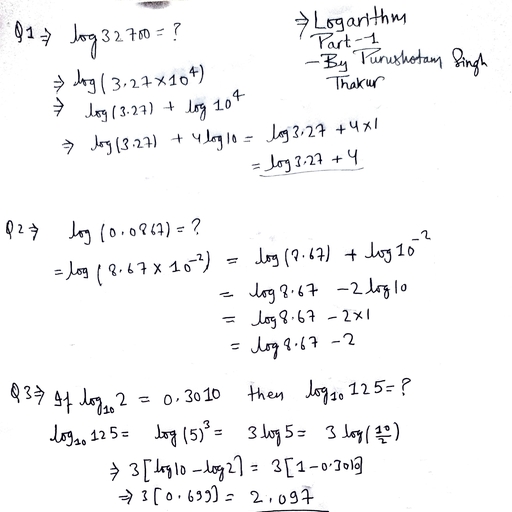 Q1⇒ log 32700 = ?
⇒ Logarithm
Part-1
- By Purushotam Singh
Thakur
⇒ log(3.27×10⁴)
⇒ log(3.27) + log 10⁴
⇒ log(3.27) + 4log10 = log3.27 + 4×1
= log3.27 + 4
Q2⇒ log(0.0867) = ?
= log(8.67×10⁻²) = log(8.67) + log10⁻²
= log8.67 - 2log10
= log8.67 - 2×1
= log8.67 - 2
Q3⇒ If log₁₀2 = 0.3010 then log₁₀125 = ?
log₁₀125 = log(5)³ = 3log5 = 3log(10/2)
⇒ 3[log10 - log2] = 3[1-0.3010]
⇒ 3[0.699] = 2.097